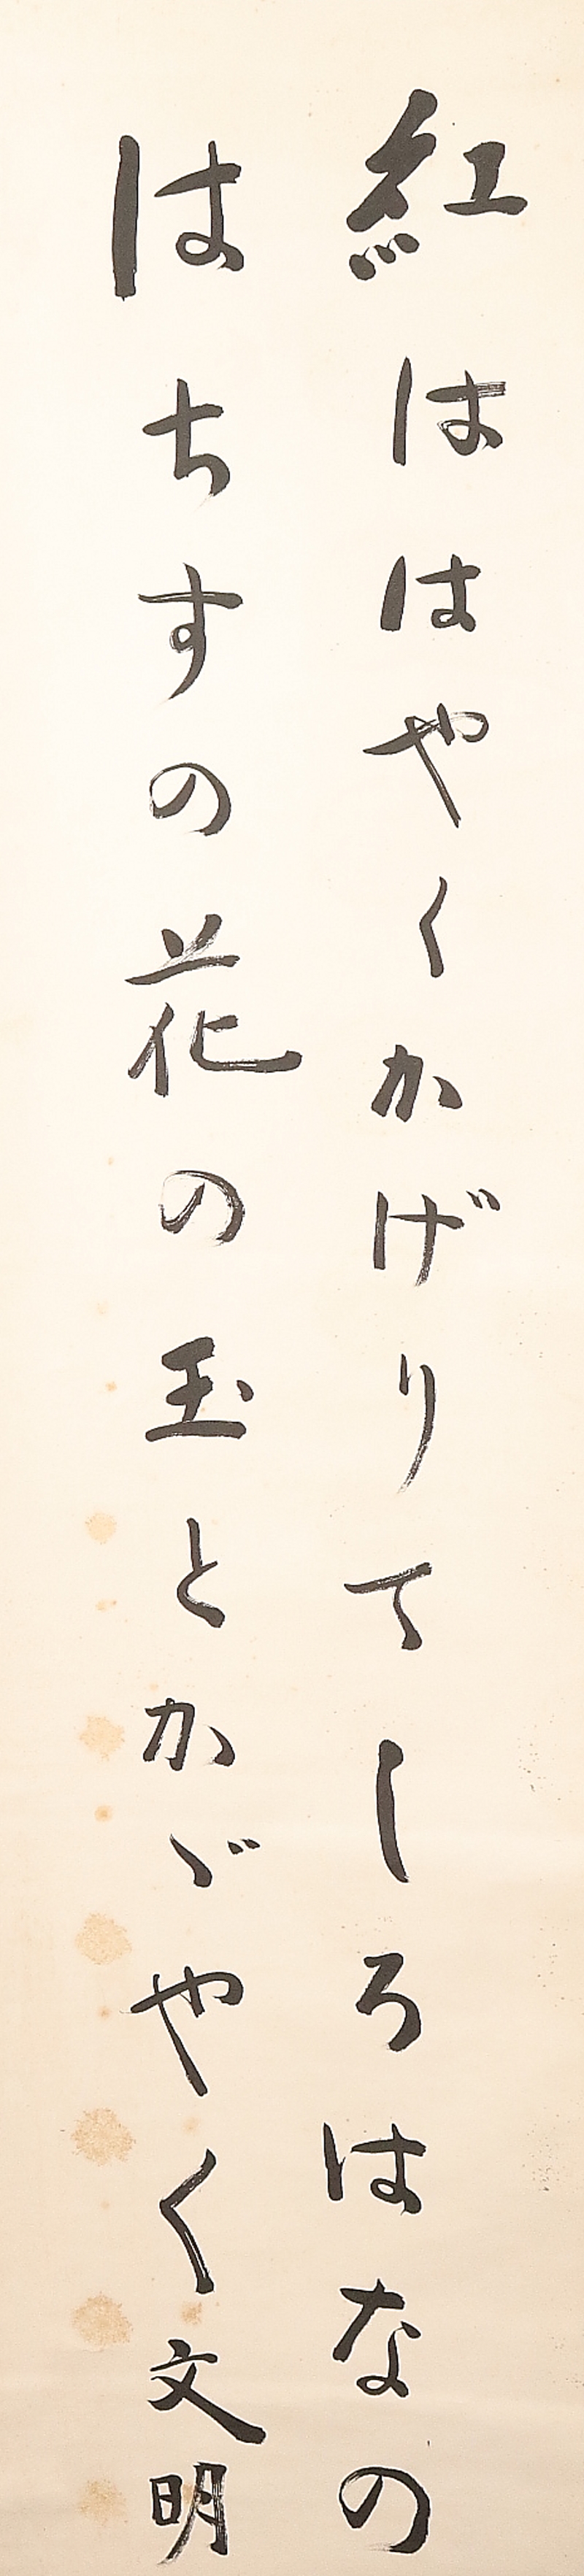 紅ははやくかげりてしろはなの
はちすの花の玉とかゞやく文明